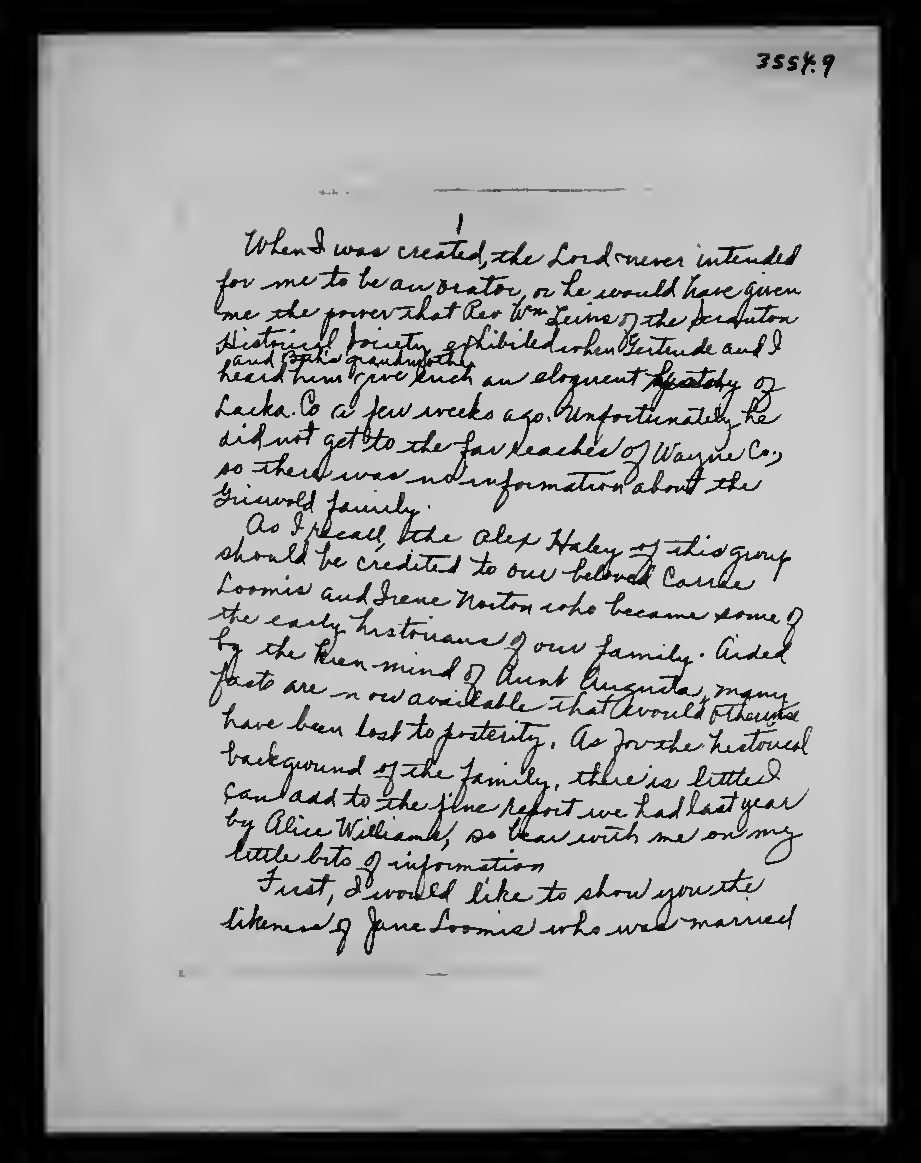 3554.9
1
When I was created, the Lord never intended
for me to be an orator, or he would have given
me the power that Rev Wm Lewis of the Scranton
Historical Society exhibited when Gertrude and I
and grandmother
heard him give such an eloquent history of
Lacka. Co a few weeks ago. Unfortunately, he
did not get to the far reaches of Wayne Co.,
so there was no information about the
Griswold family.
As I recall, the Alex Haley of this group
should be credited to our beloved Carrie
Loomis and Irene Norton who became some of
the early historians of our family. Aided
by the keen mind of Aunt Augusta, many
facts are now available that would otherwise
have been lost to posterity. As for the historical
background of the family, there is little I
can add to the fine report we had last year
by Alice Williams, so bear with me on my
little bits of information
First, I would like to show you the
likeness of Jane Loomis who was married